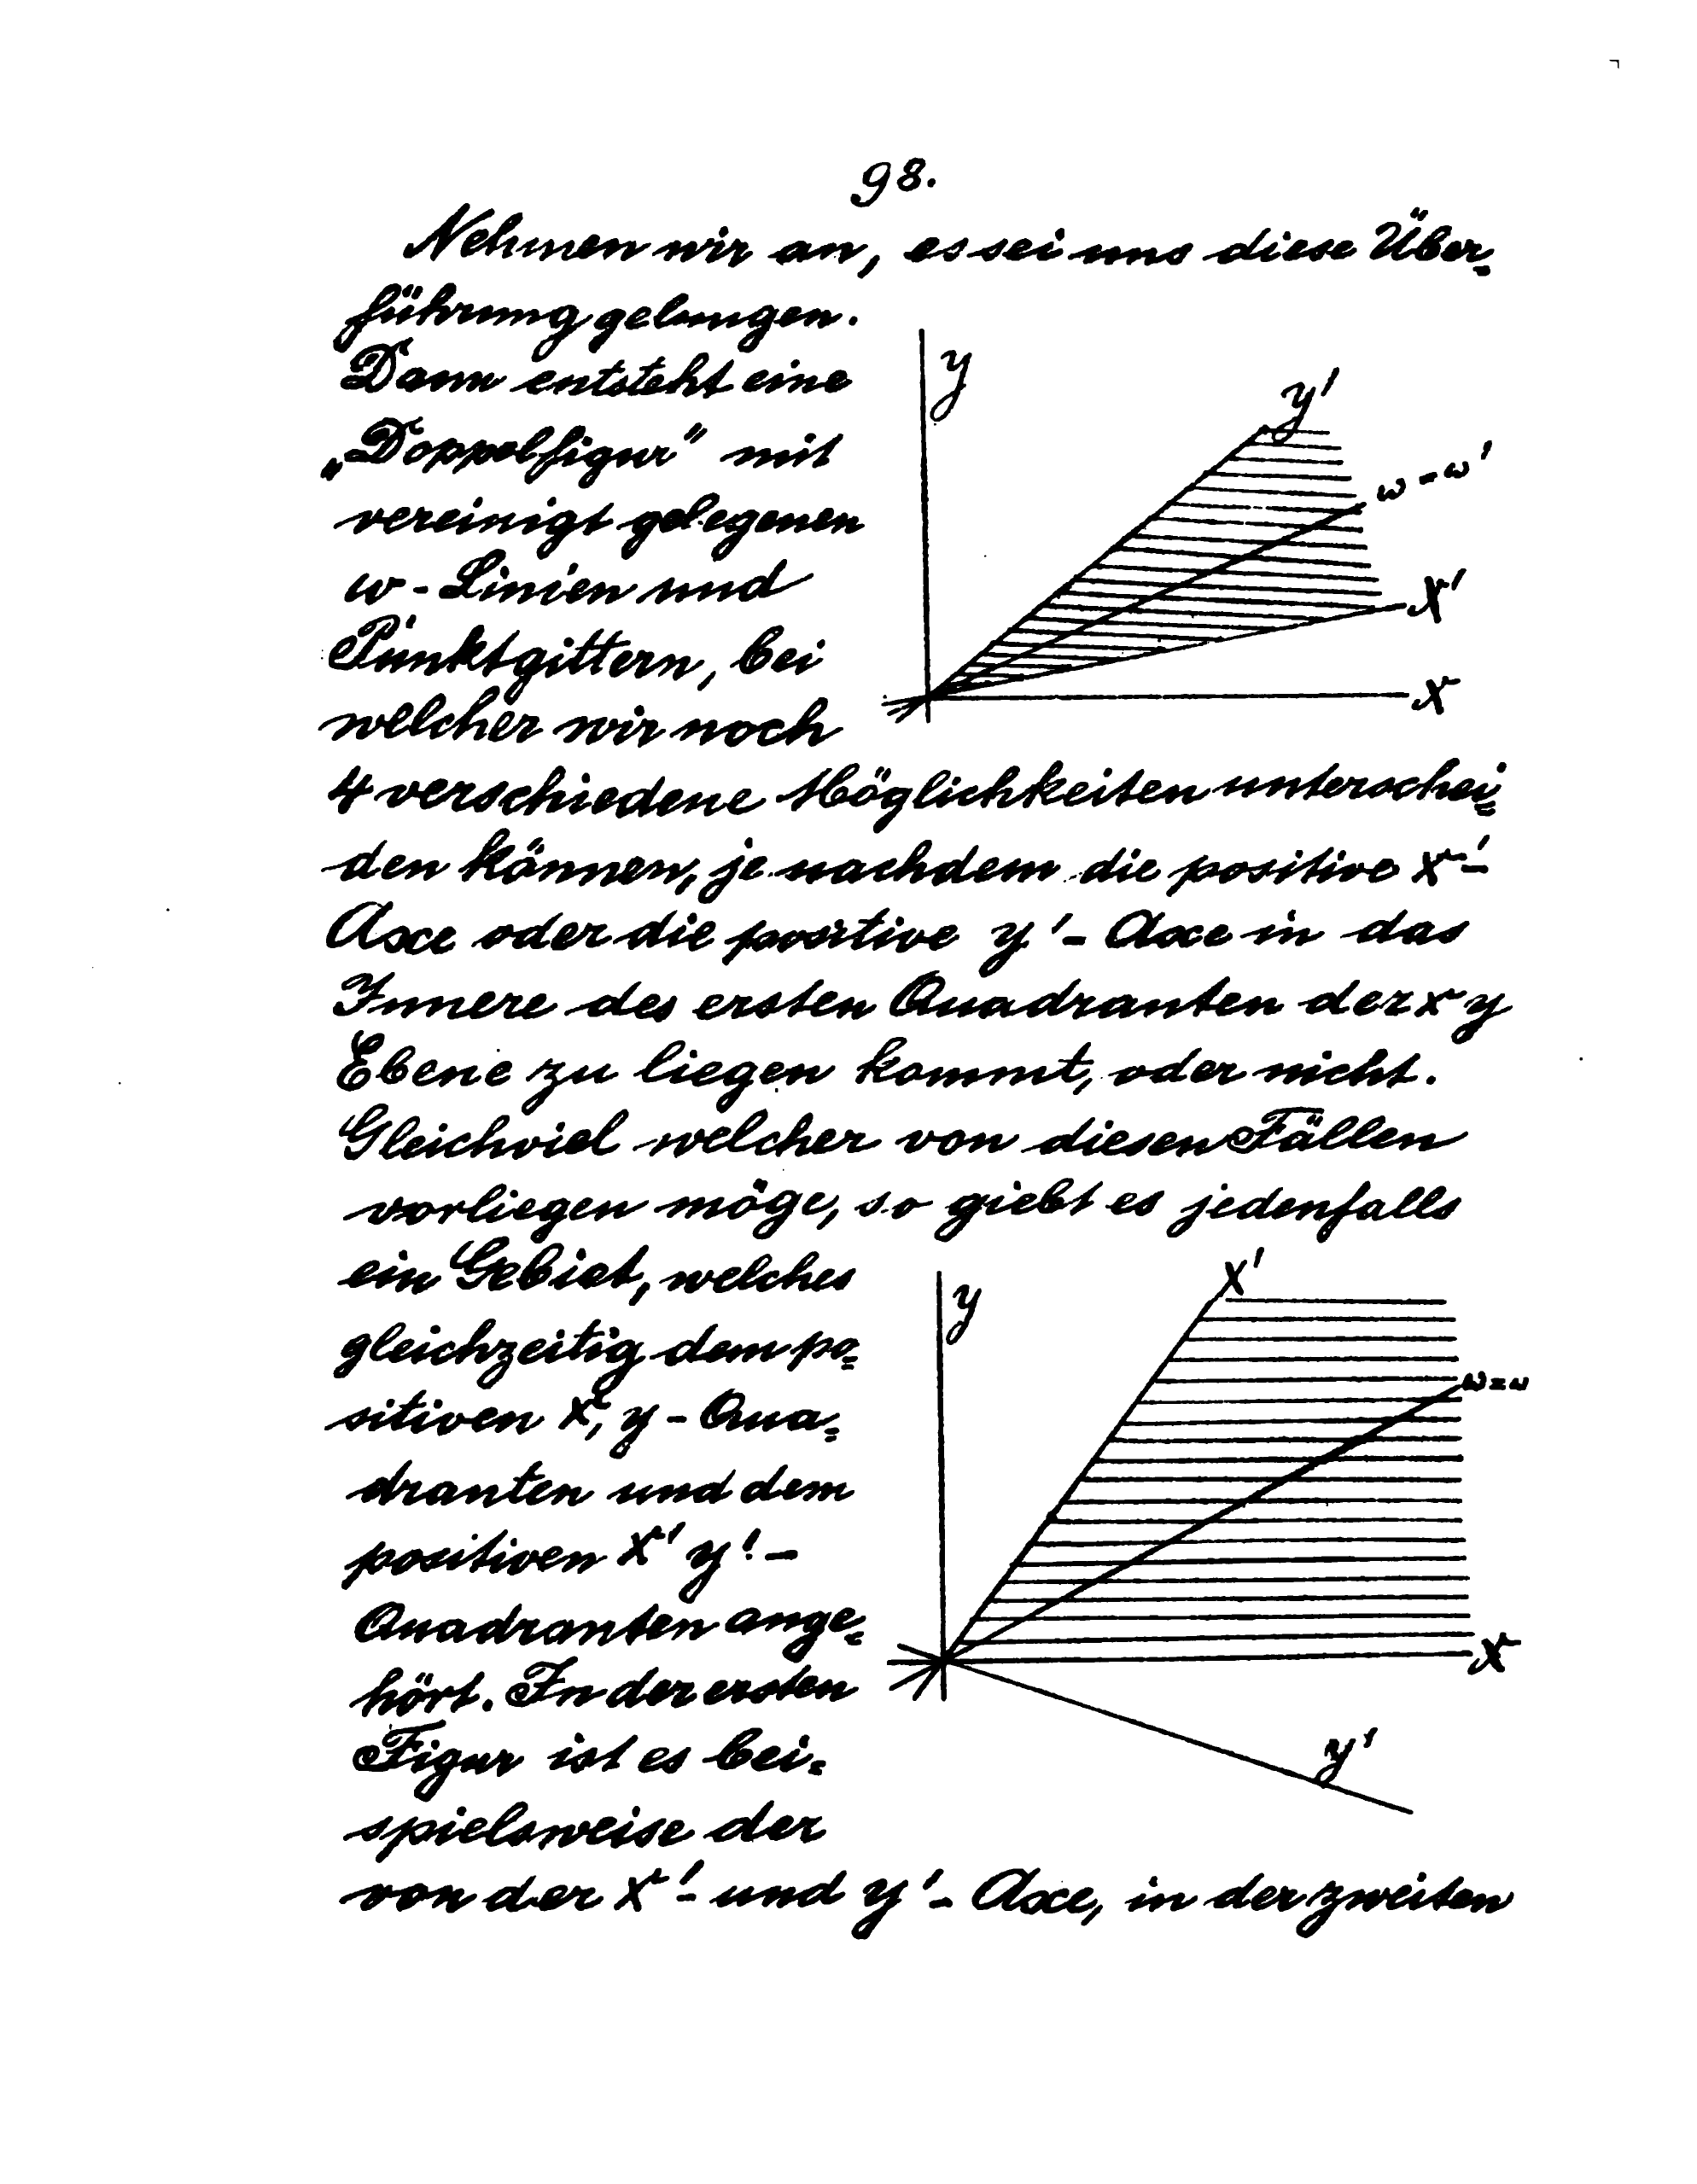 98.
Nehmen wir an, es sei uns diese Über=
führung gelungen.
Dann entsteht eine
„Doppelfigur" mit
vereinigt gelegenen
w-Linien und
Punktgittern, bei
welcher wir noch
4 verschiedene Möglichkeiten unterschei=
den können, je nachdem die positive x'-
Axe oder die positive y'-Axe in das
Innere des ersten Quadranten der x y
Ebene zu liegen kommt, oder nicht.
Gleichviel welcher von diesen Fällen
vorliegen möge, so giebt es jedenfalls
ein Gebiet, welches
gleichzeitig dem po=
sitiven x, y-Qua=
dranten und dem
positiven x' y'-
Quadranten ange=
hört. In der ersten
Figur ist es bei=
spielsweise der
von der x'- und y'-Axe, in der zweiten
y
y'
ω=ω'
x'
x
y
x'
ω=ω
x
y'